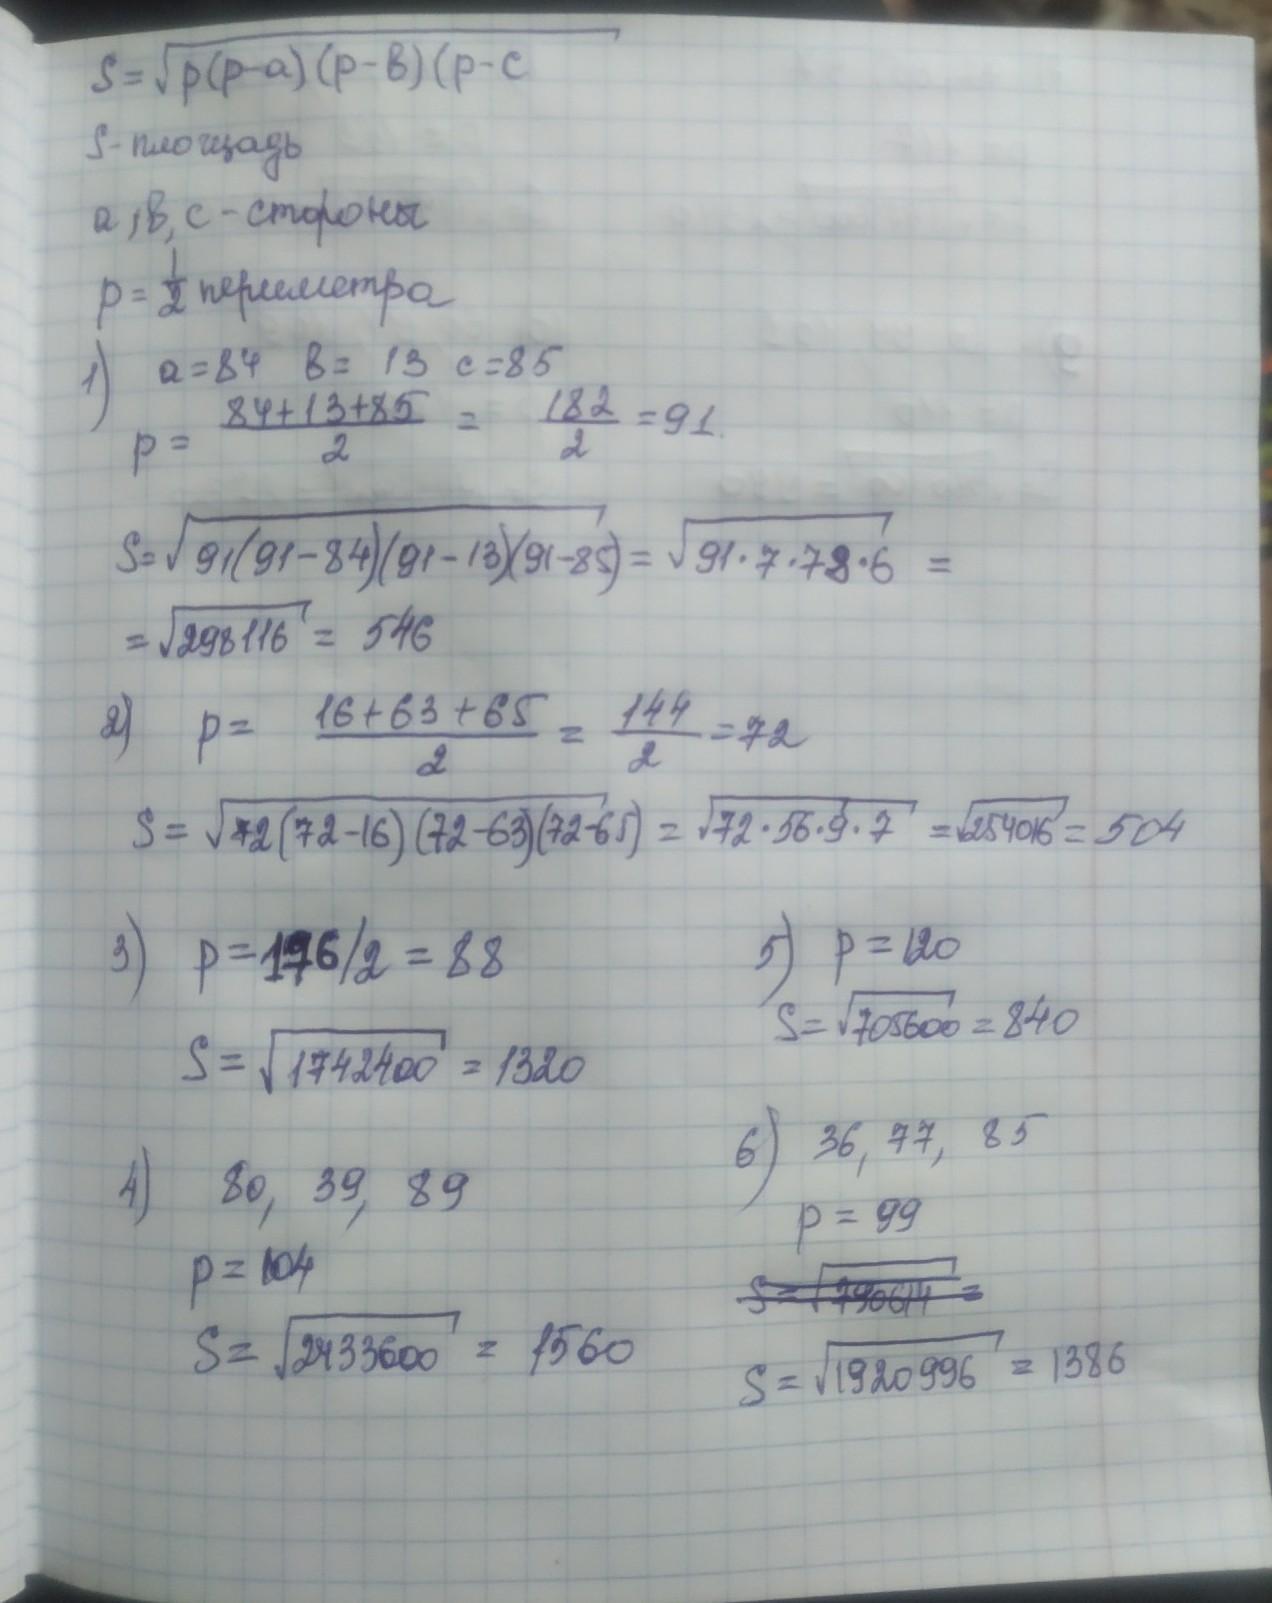 S=√p(p-a)(p-в)(p-c
S-площадь
a,в,c-стороны
p=1/2 периметра
1) a=84 в= 13 c=85
p= (84+13+85)/2 = 182/2 =91.
S=√91(91-84)(91-13)(91-85) = √91·7·78·6 =
=√298116 = 546
2) p= (16+63+65)/2 = 144/2 =72
S=√72(72-16)(72-63)(72-65) = √72·56·9·7 =√254016=504
3) p=176/2=88
S=√1742400 =1320
4) 80, 39, 89
p=104
S=√2433600 = 1560
5) p=120
S=√705600=840
6) 36, 77, 85
p=99
S=√1920996 = 1386